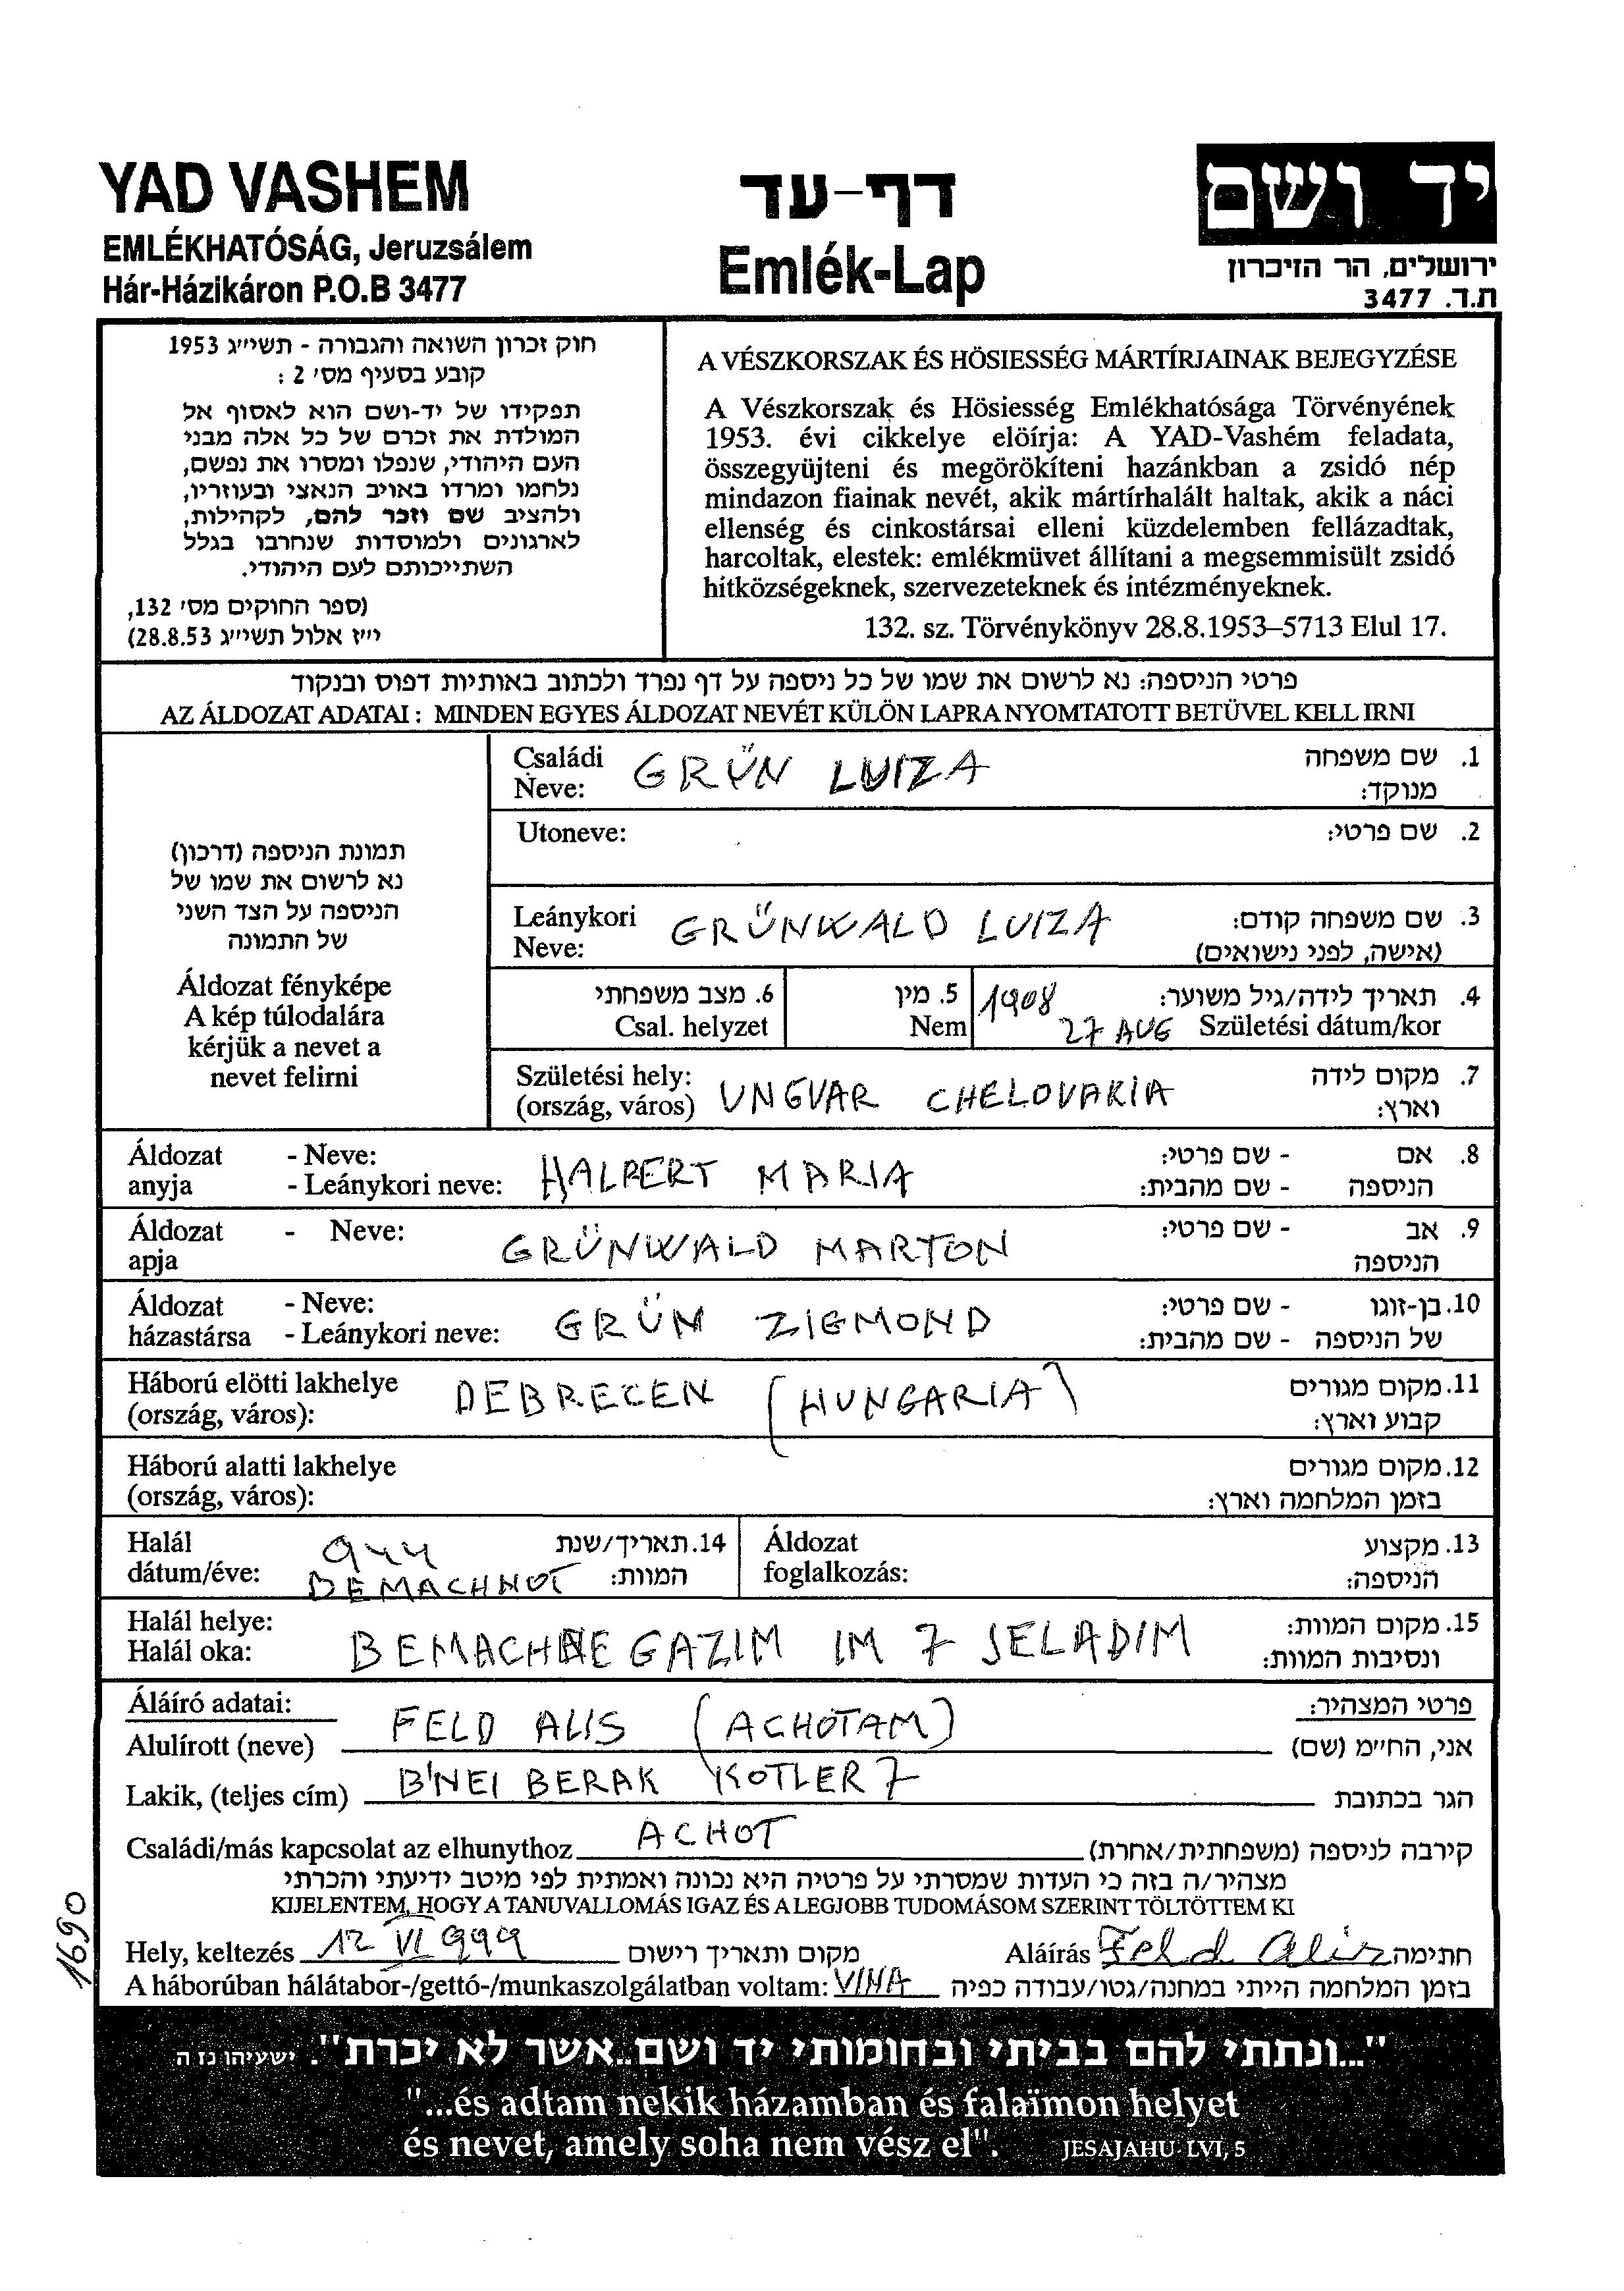 YAD VASHEM
EMLÉKHATÓSÁG, Jeruzsálem
Hár-Házikáron P.O.B 3477
דף-עד
Emlék-Lap
יד ושם
ירושלים, הר הזיכרון
ת.ד. 3477
חוק זכרון השואה והגבורה - תשי״ג 1953
קובע בסעיף מס׳ 2 :
תפקידו של יד-ושם הוא לאסוף אל
המולדת את זכרם של כל אלה מבני
העם היהודי, שנפלו ומסרו את נפשם,
נלחמו ומרדו באויב הנאצי ובעוזריו,
ולהציב שם וזכר להם, לקהילות,
לארגונים ולמוסדות שנחרבו בגלל
השתייכותם לעם היהודי.
(ספר החוקים מס׳ 132,
י״ז אלול תשי״ג 28.8.53)
A VÉSZKORSZAK ÉS HÖSIESSÉG MÁRTÍRJAINAK BEJEGYZÉSE
A Vészkorszak és Hösiesség Emlékhatósága Törvényének
1953. évi cikkelye elöírja: A YAD-Vashém feladata,
összegyüjteni és megörökíteni hazánkban a zsidó nép
mindazon fiainak nevét, akik mártírhalált haltak, akik a náci
ellenség és cinkostársai elleni küzdelemben fellázadtak,
harcoltak, elestek: emlékmüvet állítani a megsemmisült zsidó
hitközségeknek, szervezeteknek és intézményeknek.
132. sz. Törvénykönyv 28.8.1953–5713 Elul 17.
פרטי הניספה: נא לרשום את שמו של כל ניספה על דף נפרד ולכתוב באותיות דפוס ובנקוד
AZ ÁLDOZAT ADATAI : MINDEN EGYES ÁLDOZAT NEVÉT KÜLÖN LAPRA NYOMTATOTT BETÜVEL KELL IRNI
תמונת הניספה (דרכון)
נא לרשום את שמו של
הניספה על הצד השני
של התמונה
Áldozat fényképe
A kép túlodalára
kérjük a nevet a
nevet felirni
Családi Neve: GRÜN LUIZA 1. שם משפחה מנוקד:
Utoneve: 2. שם פרטי:
Leánykori Neve: GRÜNWALD LUIZA 3. שם משפחה קודם: (אישה, לפני נישואים)
6. מצב משפחתי Csal. helyzet
5. מין Nem
1908 27 AUG 4. תאריך לידה/גיל משוער: Születési dátum/kor
Születési hely: (ország, város) UNGVAR CHELOVAKIA 7. מקום לידה וארץ:
Áldozat anyja - Neve: - Leánykori neve: HALPERT MARIA 8. אם הניספה - שם פרטי: - שם מהבית:
Áldozat apja - Neve: GRÜNWALD MARTON 9. אב הניספה - שם פרטי:
Áldozat házastársa - Neve: - Leánykori neve: GRÜN ZIGMOND 10. בן-זוגו של הניספה - שם פרטי: - שם מהבית:
Háború elötti lakhelye (ország, város): DEBRECEN (HUNGARIA) 11. מקום מגורים קבוע וארץ:
Háború alatti lakhelye (ország, város): 12. מקום מגורים בזמן המלחמה וארץ:
Halál dátum/éve: 944 DEMACHNOT 14. תאריך/שנת המוות:
Áldozat foglalkozás: 13. מקצוע הניספה:
Halál helye: Halál oka: BEMACHNE GAZIM IM 7 JELADIM 15. מקום המוות: ונסיבות המוות:
Áláíró adatai: פרטי המצהיר:
Alulírott (neve) FELD ALIS (ACHOTAM) אני, החי״מ (שם)
Lakik, (teljes cím) B'NEI BERAK KOTLER 7 הגר בכתובת
Családi/más kapcsolat az elhunythoz ACHOT קירבה לניספה (משפחתית/אחרת)
מצהיר/ה בזה כי העדות שמסרתי על פרטיה היא נכונה ואמתית לפי מיטב ידיעתי והכרתי
KIJELENTEM, HOGY A TANUVALLOMÁS IGAZ ÉS A LEGJOBB TUDOMÁSOM SZERINT TÖLTÖTTEM KI
Hely, keltezés 12 VI 999 מקום ותאריך רישום Aláírás Feld Alis חתימה
A háborúban hálátabor-/gettó-/munkaszolgálatban voltam: VINA בזמן המלחמה הייתי במחנה/גטו/עבודה כפיה
1690
"...ונתתי להם בביתי ובחומותי יד ושם...אשר לא יכרת". ישעיהו נו ה
"...és adtam nekik házamban és falaïmon helyet
és nevet, amely soha nem vész el". JESAJAHU- LVI, 5